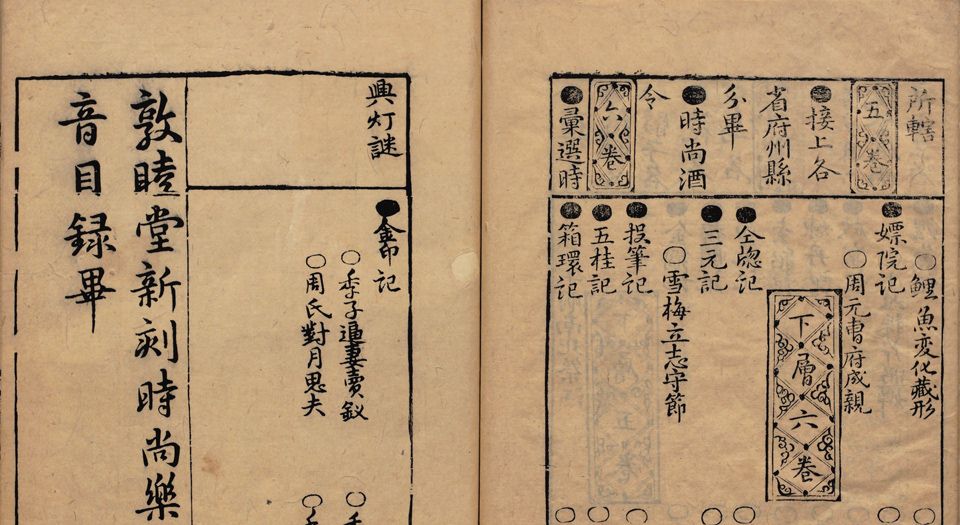 所轄
五卷
●接上各
省府州縣
分畢
●時尚酒
令
六卷
●彙選時
○鯉魚変化藏形
●嫖院記
○周元曺府成親
下層六卷
●仝牎記
●三元記
○雪梅立志守節
●投筆記
●五桂記
●箱環記
興灯謎
●金印記
○季子逼妻賣釵
○周氏對月思夫
敦睦堂新刻時尚樂
音目録畢